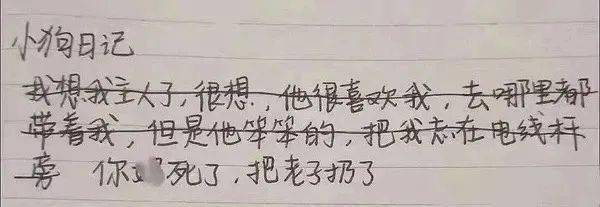 小狗日记
我想我主人了,很想,他很喜欢我,去哪里都
带着我,但是他笨笨的,把我忘在电线杆
旁 你死了,把老子扔了